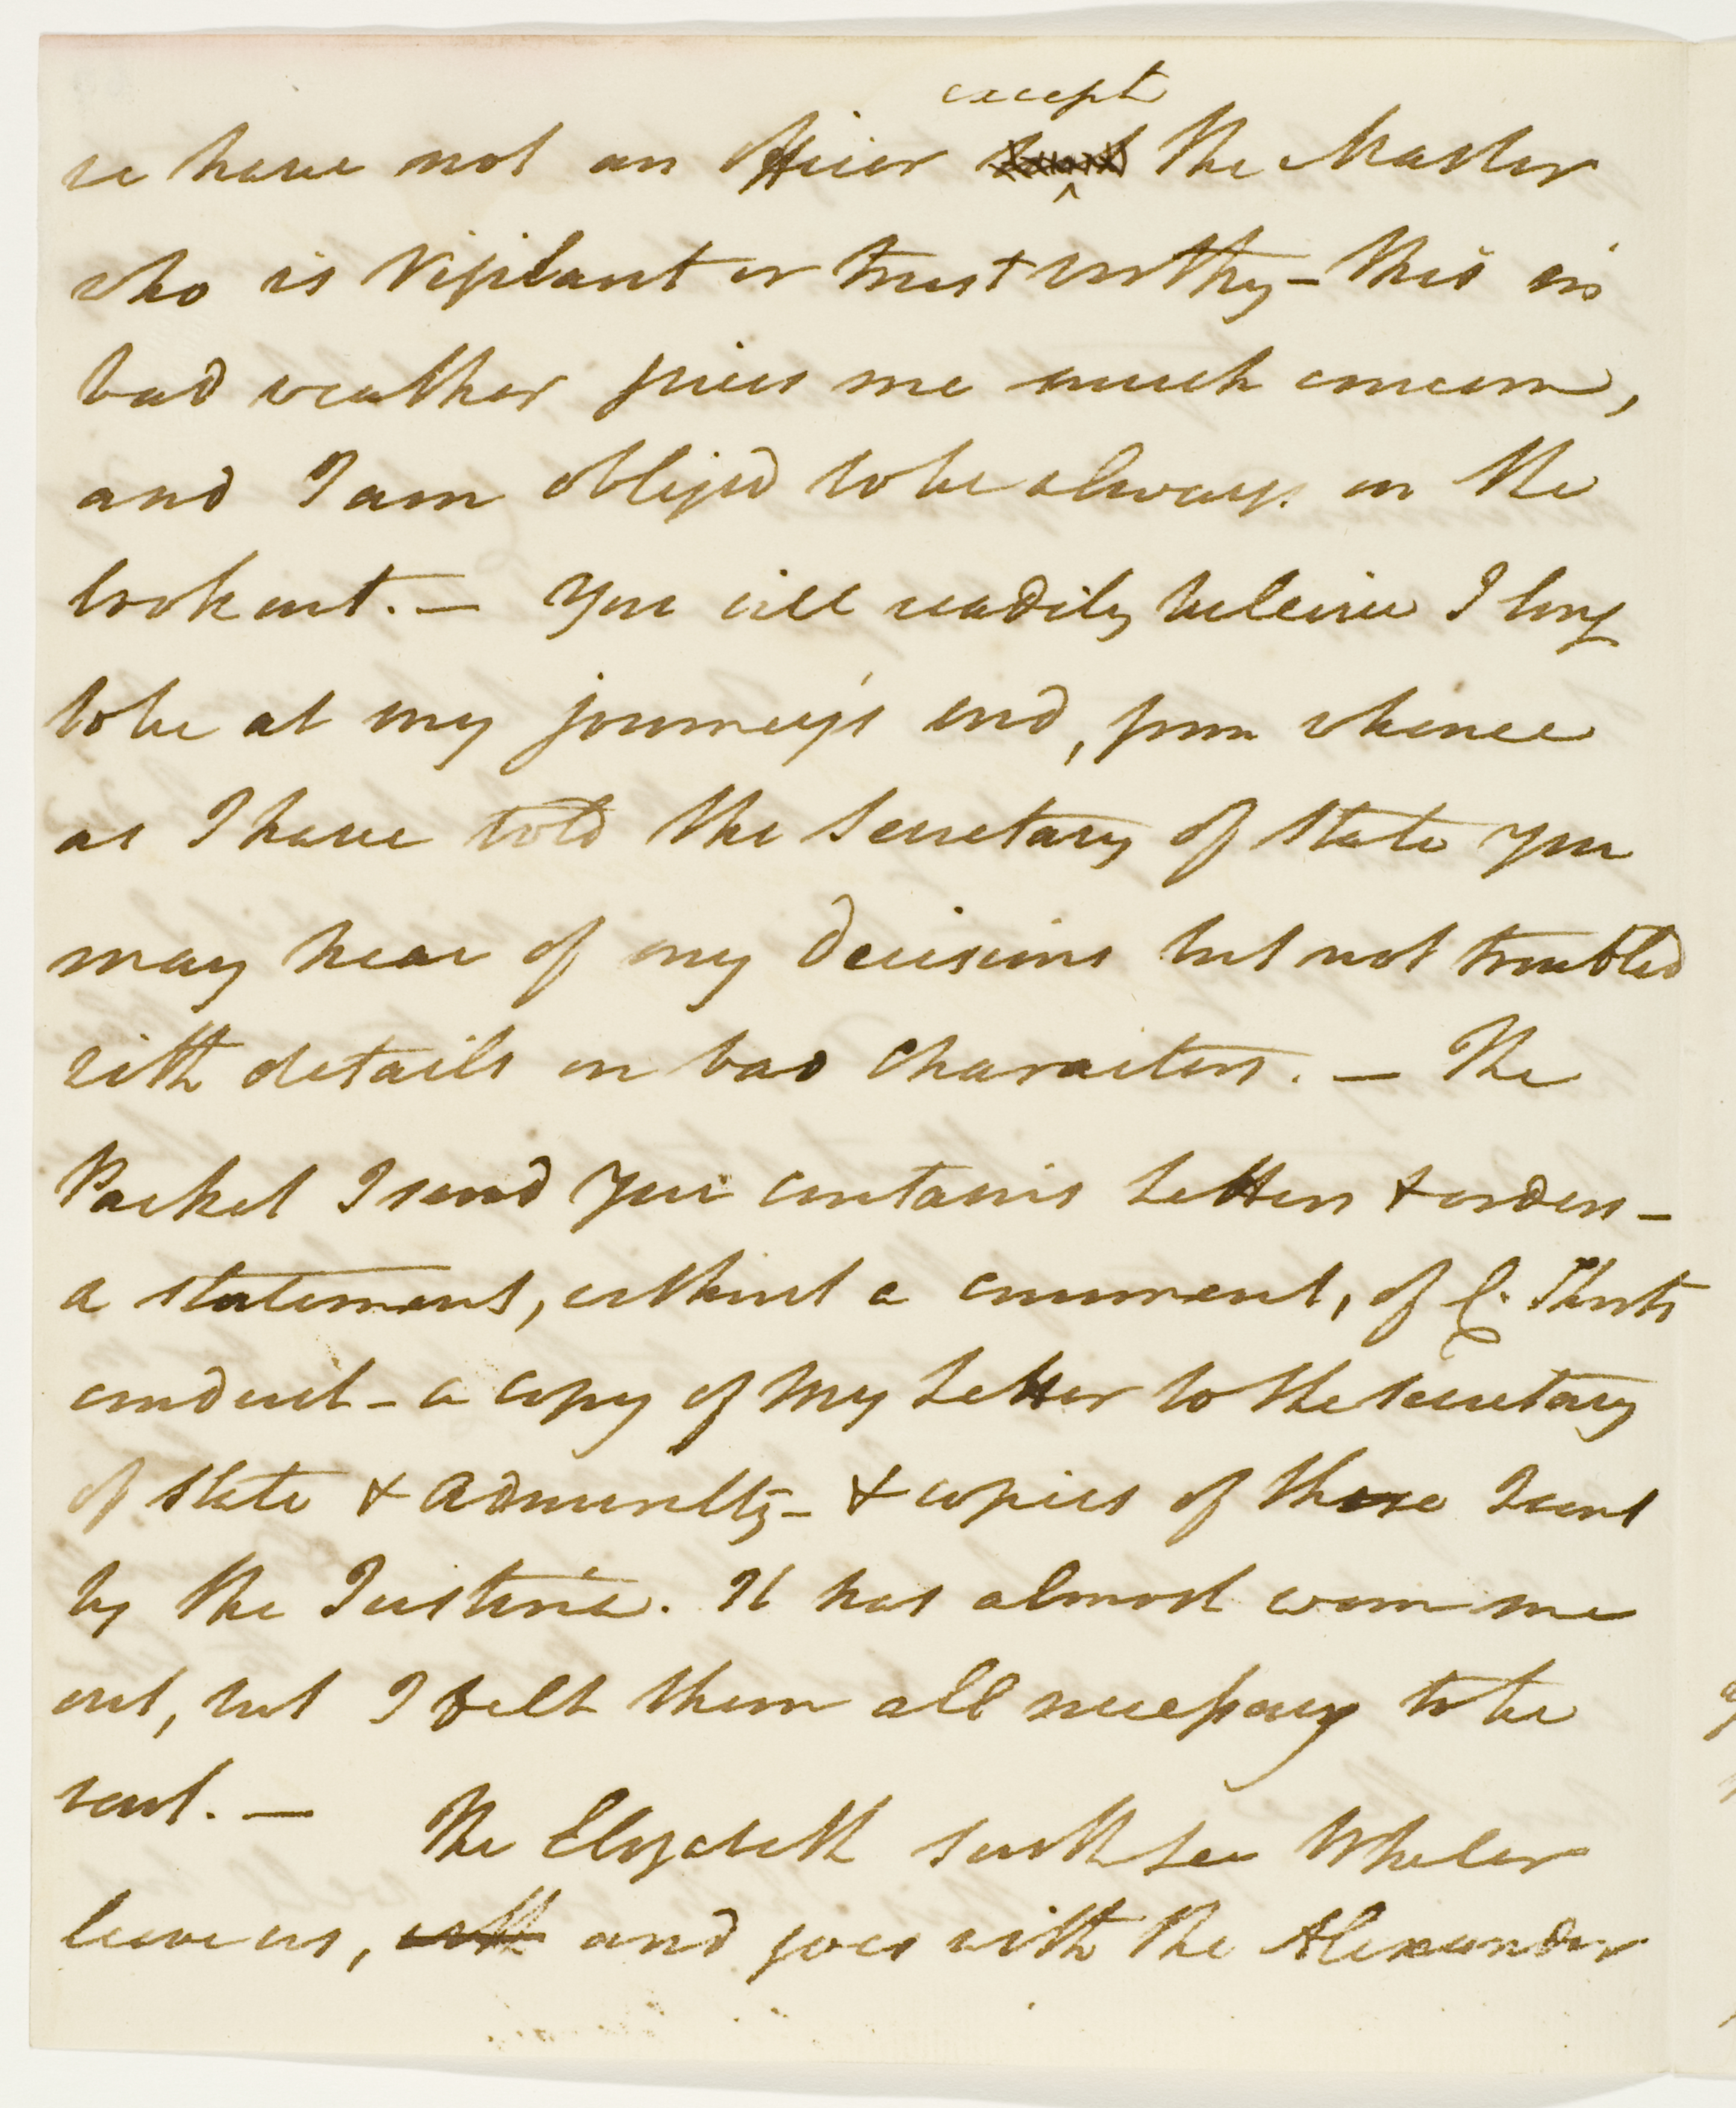 except
we have not an Officer but the Master
who is Vigilant or trust worthy – this in
bad weather gives me much concern,
and I am obliged to be always on the
look out. — You will readily beleive I long
to be at my journey's end, from whence
as I have told the Secretary of State you
may hear of my decisions but not troubled
with details on bad characters. — The
Packet I send you contains Letters & orders –
a statement, without a comment, of C. Shorts
conduct – a copy of my Letter to the Secretary
of State & Admiralty – & copies of those I sent
by the Justina. It has almost worn me
out, but I felt them all necessary to be
sent. —
The Elizabeth South Sea Whaler
leave us, with and goes with the Alexander